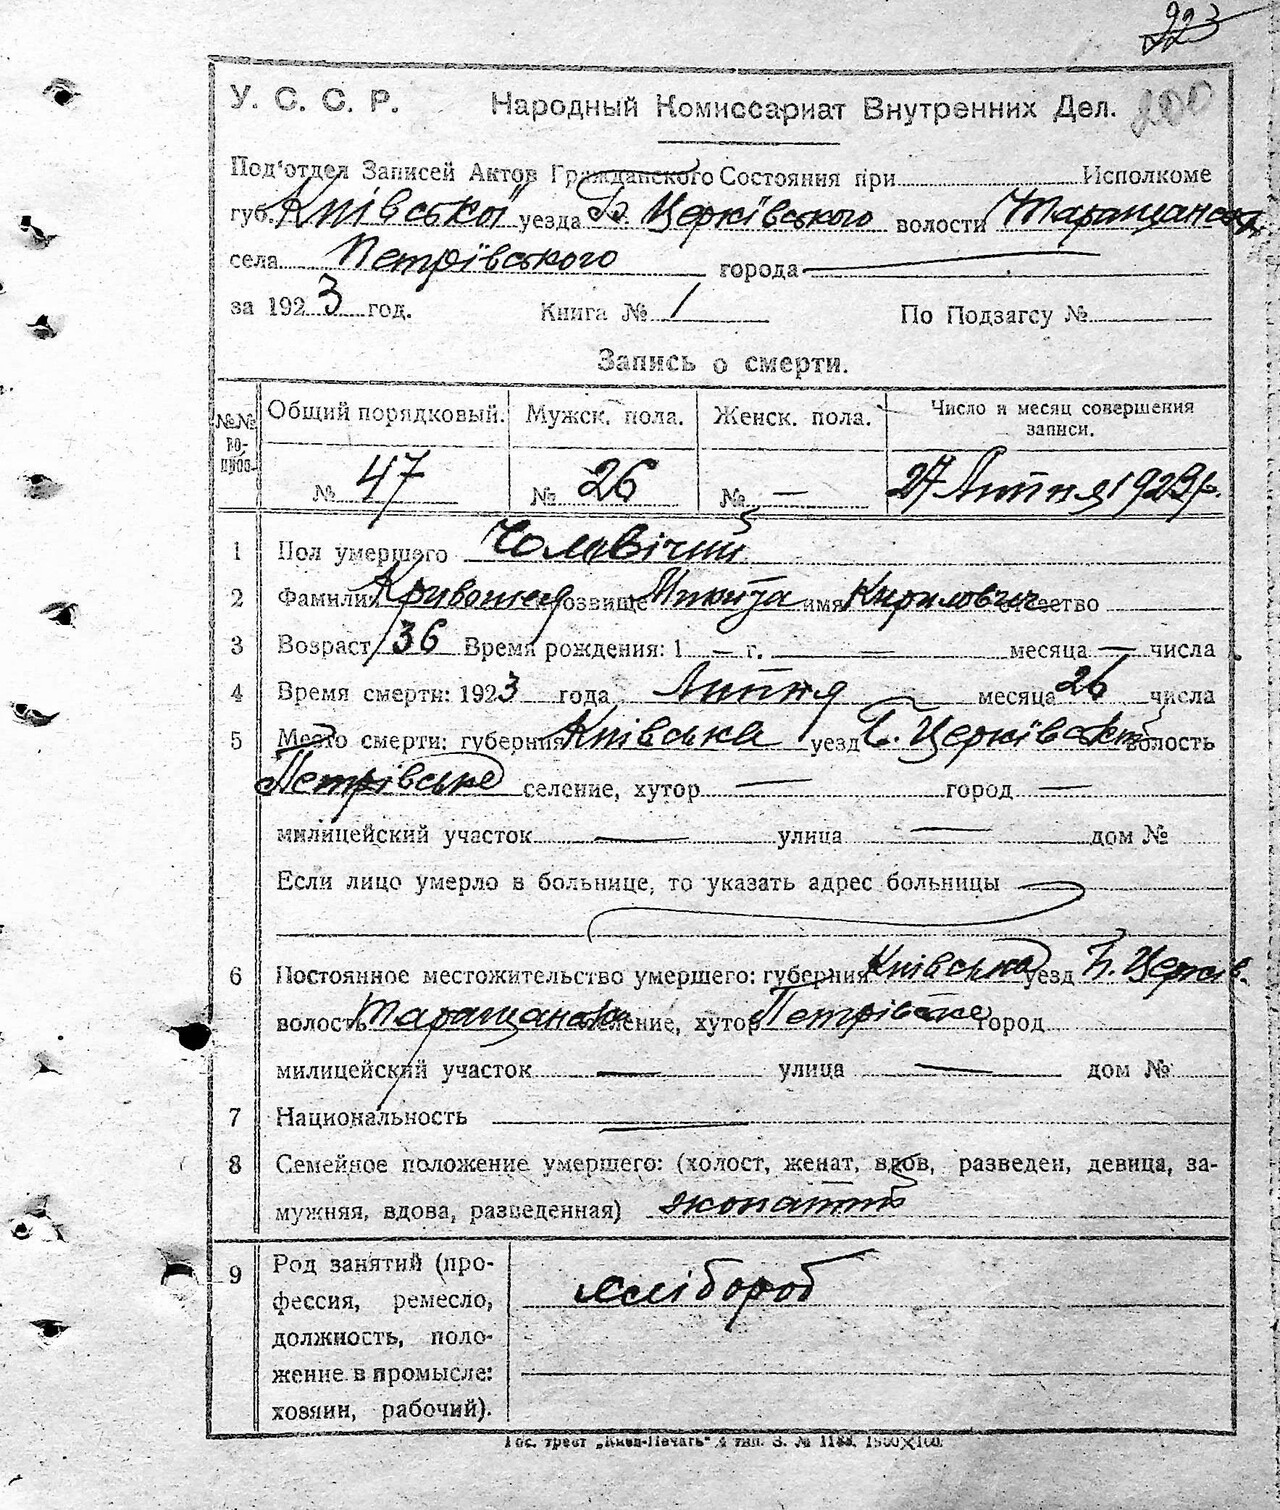 223
У. С. С. Р. Народный Комиссариат Внутренних Дел. 200
Под'отдел Записей Актов Гражданского Состояния при Исполкоме
губ. Київської уезда Б. Церківського волости Таращанськ.
села Петрівського города —
за 1923 год. Книга № 1 По Подзагсу №
Запись о смерти.
№№ вопрос. Общий порядковый. Мужск. пола. Женск. пола. Число и месяц совершения записи.
№ 47 № 26 № — 27 Липня 1923 р.
1 Пол умершего Чоловічий
2 Фамилия Кривошея прозвище Микита имя Кирилович отчество
3 Возраст 36 Время рождения: 1 — г. — месяца — числа
4 Время смерти: 1923 года Липня месяца 26 числа
5 Место смерти: губерния Київська уезд Б. Церківськ. волость
Петрівське селение, хутор — город —
милицейский участок — улица — дом №
Если лицо умерло в больнице, то указать адрес больницы —
6 Постоянное местожительство умершего: губерния Київська уезд Б. Церків.
волость Таращанська селение, хутор Петрівське город
милицейский участок — улица — дом №
7 Национальность —
8 Семейное положение умершего: (холост, женат, вдов, разведен, девица, за-
мужняя, вдова, разведенная) жонатий
9 Род занятий (про-
фессия, ремесло,
должность, поло-
жение в промысле:
хозяин, рабочий).
хлібороб
Гос. трест „Киев-Печать“ 4 тип. З. №